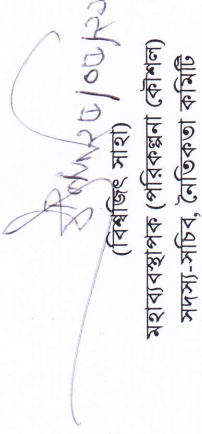 (বিশ্বজিৎ সাহা)
মহাব্যবস্থাপক (পরিকল্পনা কৌশল)
সদস্য-সচিব, নৈতিকতা কমিটি